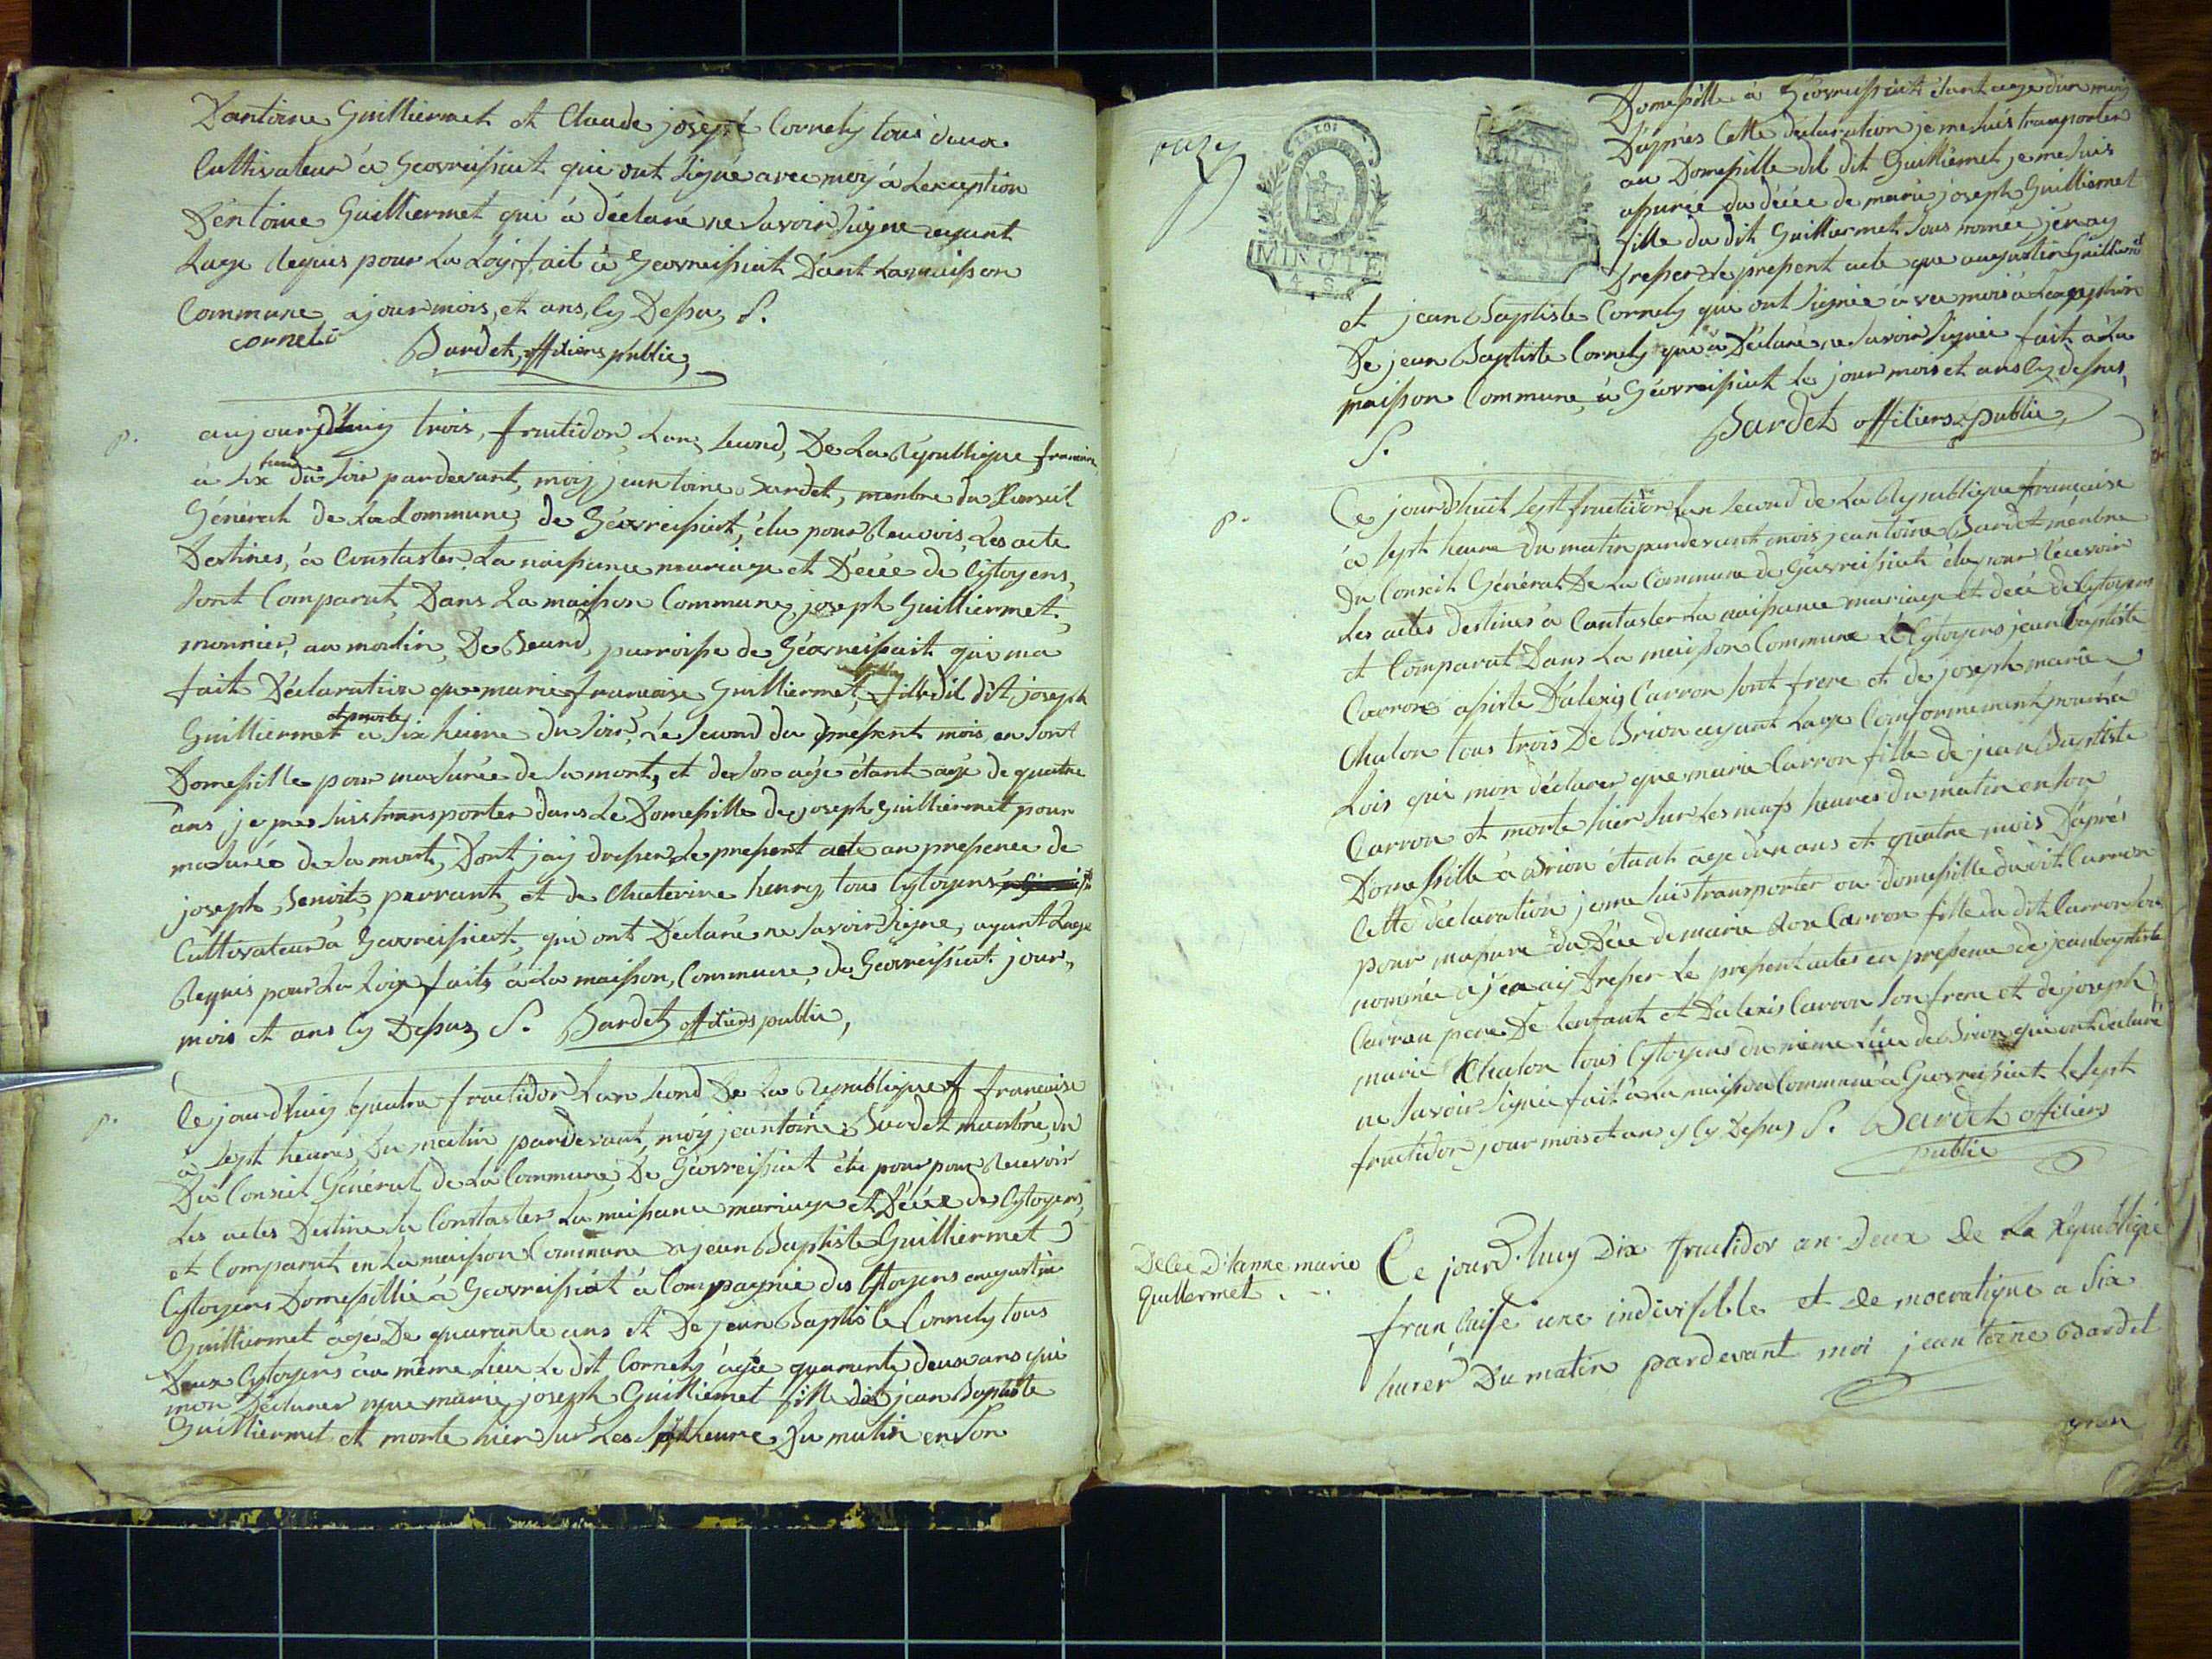 Dantoine Guilliermet et Claude joseph Cornely tous deux
Cultivateur à Géovreissiat qui ont Signé avec moy à Lexception
D'entoine Guilliermet qui à déclaré ne Savoir Signe ayant
Lage requis pour La Loy fait à Géovreissiat Dant La maisson
Commune jour mois, et ans, Cy Dessus S.
corneli
Bardet, officiers public,
p.
aujourd'huy trois, fructidor, Lan Second, De La République francaise
à six heure du soir pardevant, moy jeantoine Bardet, menbre du Conseil
Général de La Commune de Géovreissiat, élu pour Recevoir Les acte
Destines, à Constaster La naissance mariage et Décée de Cytoyens,
Sont Comparut, Dans La maisson Commune, joseph Guilliermet,
monnier, au moulin, De Beard, parroisse de Géovreissiat qui ma
fait Déclaration que marie francaise Guilliermet, fille dil dit joseph
Guilliermet et morte à six heure du soir, Le Second du present mois en sont
Domessille pour massurée de sa mort, et de son age étant agé de quatre
ans je me suis transporter dans Le Domessille de joseph Guilliermet pour
masurée de sa mort, Dont jay dresser Le present acte an presence de
joseph, Benoit, perrant, et de Chaterine henry, tous Cytoyens
Cultivateur à Géovreissiat, qui ont Déclaré ne savoir Signe, ayant Lage
Requis pour La Loix faits à La maisson, Commune, de Géovreissiat jour,
mois et ans Cy Dessus, S. Bardet officiers public,
p.
Ce jourdhuy quatre fructidor Lan Scond De La Republique francaise
à Sept heures Du matin pardevant, moy jeantoine Bardet manbre, du
Du Conseil Général de La Commune De Géovreissiat élu pour pour Recevoir
Les actes Destine à Constaster La naissance mariage et Décée des Cytoyens,
et Comparut en La maison Commune jean Baptiste Guilliermet
Cytoyens Domessillié à Géovreissiat à Compagnie des Cytoyens augustin
Guilliermet âgé De quarante ans et De jean Baptiste Cornely tous
Deux Cytoyens au même Lieu Le dit Cornely agée quarente deux ans qui
mon Déclarer que marie joseph Guilliermet fille dit jean Baptiste
Guilliermet et morte hier sur Les heure Du matin en Son
MINUTE
Domessille à Géovreissiat étant age d'un mois
D'après Cette déclaration je me suis transporter
au Domessille dil dit Guilliermet je me suis
assurée du décée de marie joseph Guilliermet
fille du dit Guilliermet Sous nomée j'en ay
Dresser Le present acte que augustin Guilliermet
et jean Baptiste Cornely qui ont signée à vec moi à Lexception
De jean Baptiste Cornely qui à Déclaré ne savoir signée fait à La
maisson Commune à Géovreissiat Le jour mois et ans Cy dessus,
S. Bardet officiers public,
p.
Ce jourdhuit Sept fructidor Lan Second de La Republique francaise
à Sept heure Du matin pardevant mois jeantoine Bardet menbre
Du Conseil Général De La Commune de Géovreissiat élu pour Recevoir
Les actes destines à Contaster La naissance mariage et décé de Cytoyens
et Comparut Dans La maisson Commune Le Cytoyens jean baptiste
Carron asiste D'alexis Carron sont frere et de joseph marie
Chalon tous trois De Brion ayant Lage Conformement pour La
Lois qui mon déclarer que marie Carron fille de jean Baptiste
Carron et morte hier sur Les neufs heures du matin en son
Domessille à Brion étant age dun ans et quatre mois D'aprés
Cette déclaration je me suis transporter ou domessille du dit Carron
pour massure du Décé de marie Carron fille du dit Carron sou
nomée j'en ay dresser Le present actes en presence de jean baptiste
Carron pere De Lenfant et D'alexis Carron son frere et de joseph
marie Chalon tous Cytoyens du même Lieu de Brion qui ont déclaré
ne Savoir Signée fait à La maisson Commune à Géovreissiat Le Sept
fructidor jour mois et an Cy Dessus S. Bardet officiers
public
Décée D'anne marie
Guillermet
Ce jourd'huy Dix fructidor an Deux de La République
française une indivisible et democratique a Six
hurer Du matin pardevant moi jeantoine Bardel